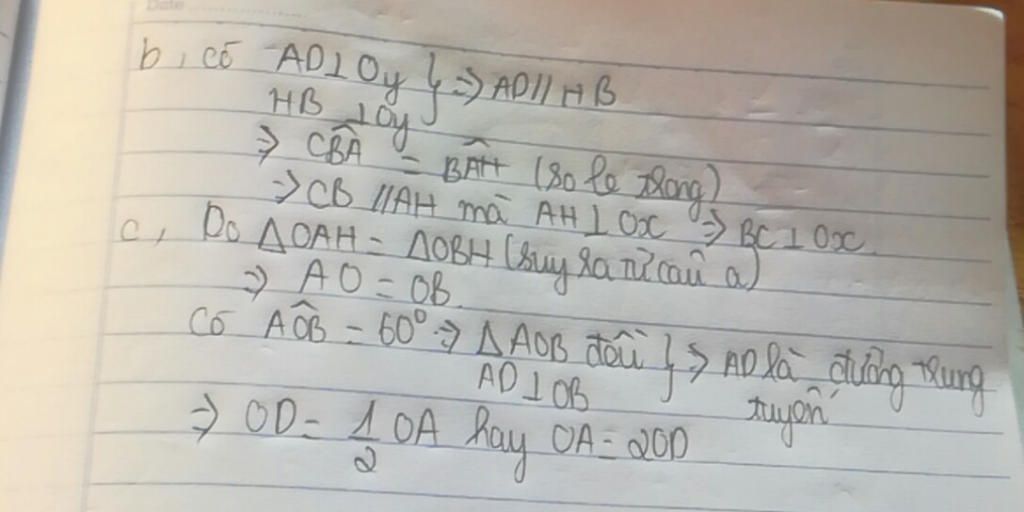 Date
b, có AD⊥Oy } ⇒ AD // HB
HB ⊥Oy
⇒ CB̂A = BÂH (so le trong)
⇒ CB // AH mà AH ⊥ Ox ⇒ BC ⊥ Ox
c, Do ΔOAH = ΔOBH (suy ra từ câu a)
⇒ AO = OB
Có AÔB = 60° ⇒ ΔAOB đều } ⇒ AD là đường trung
AD⊥OB tuyến
⇒ OD = 1/2 OA hay OA = 2OD